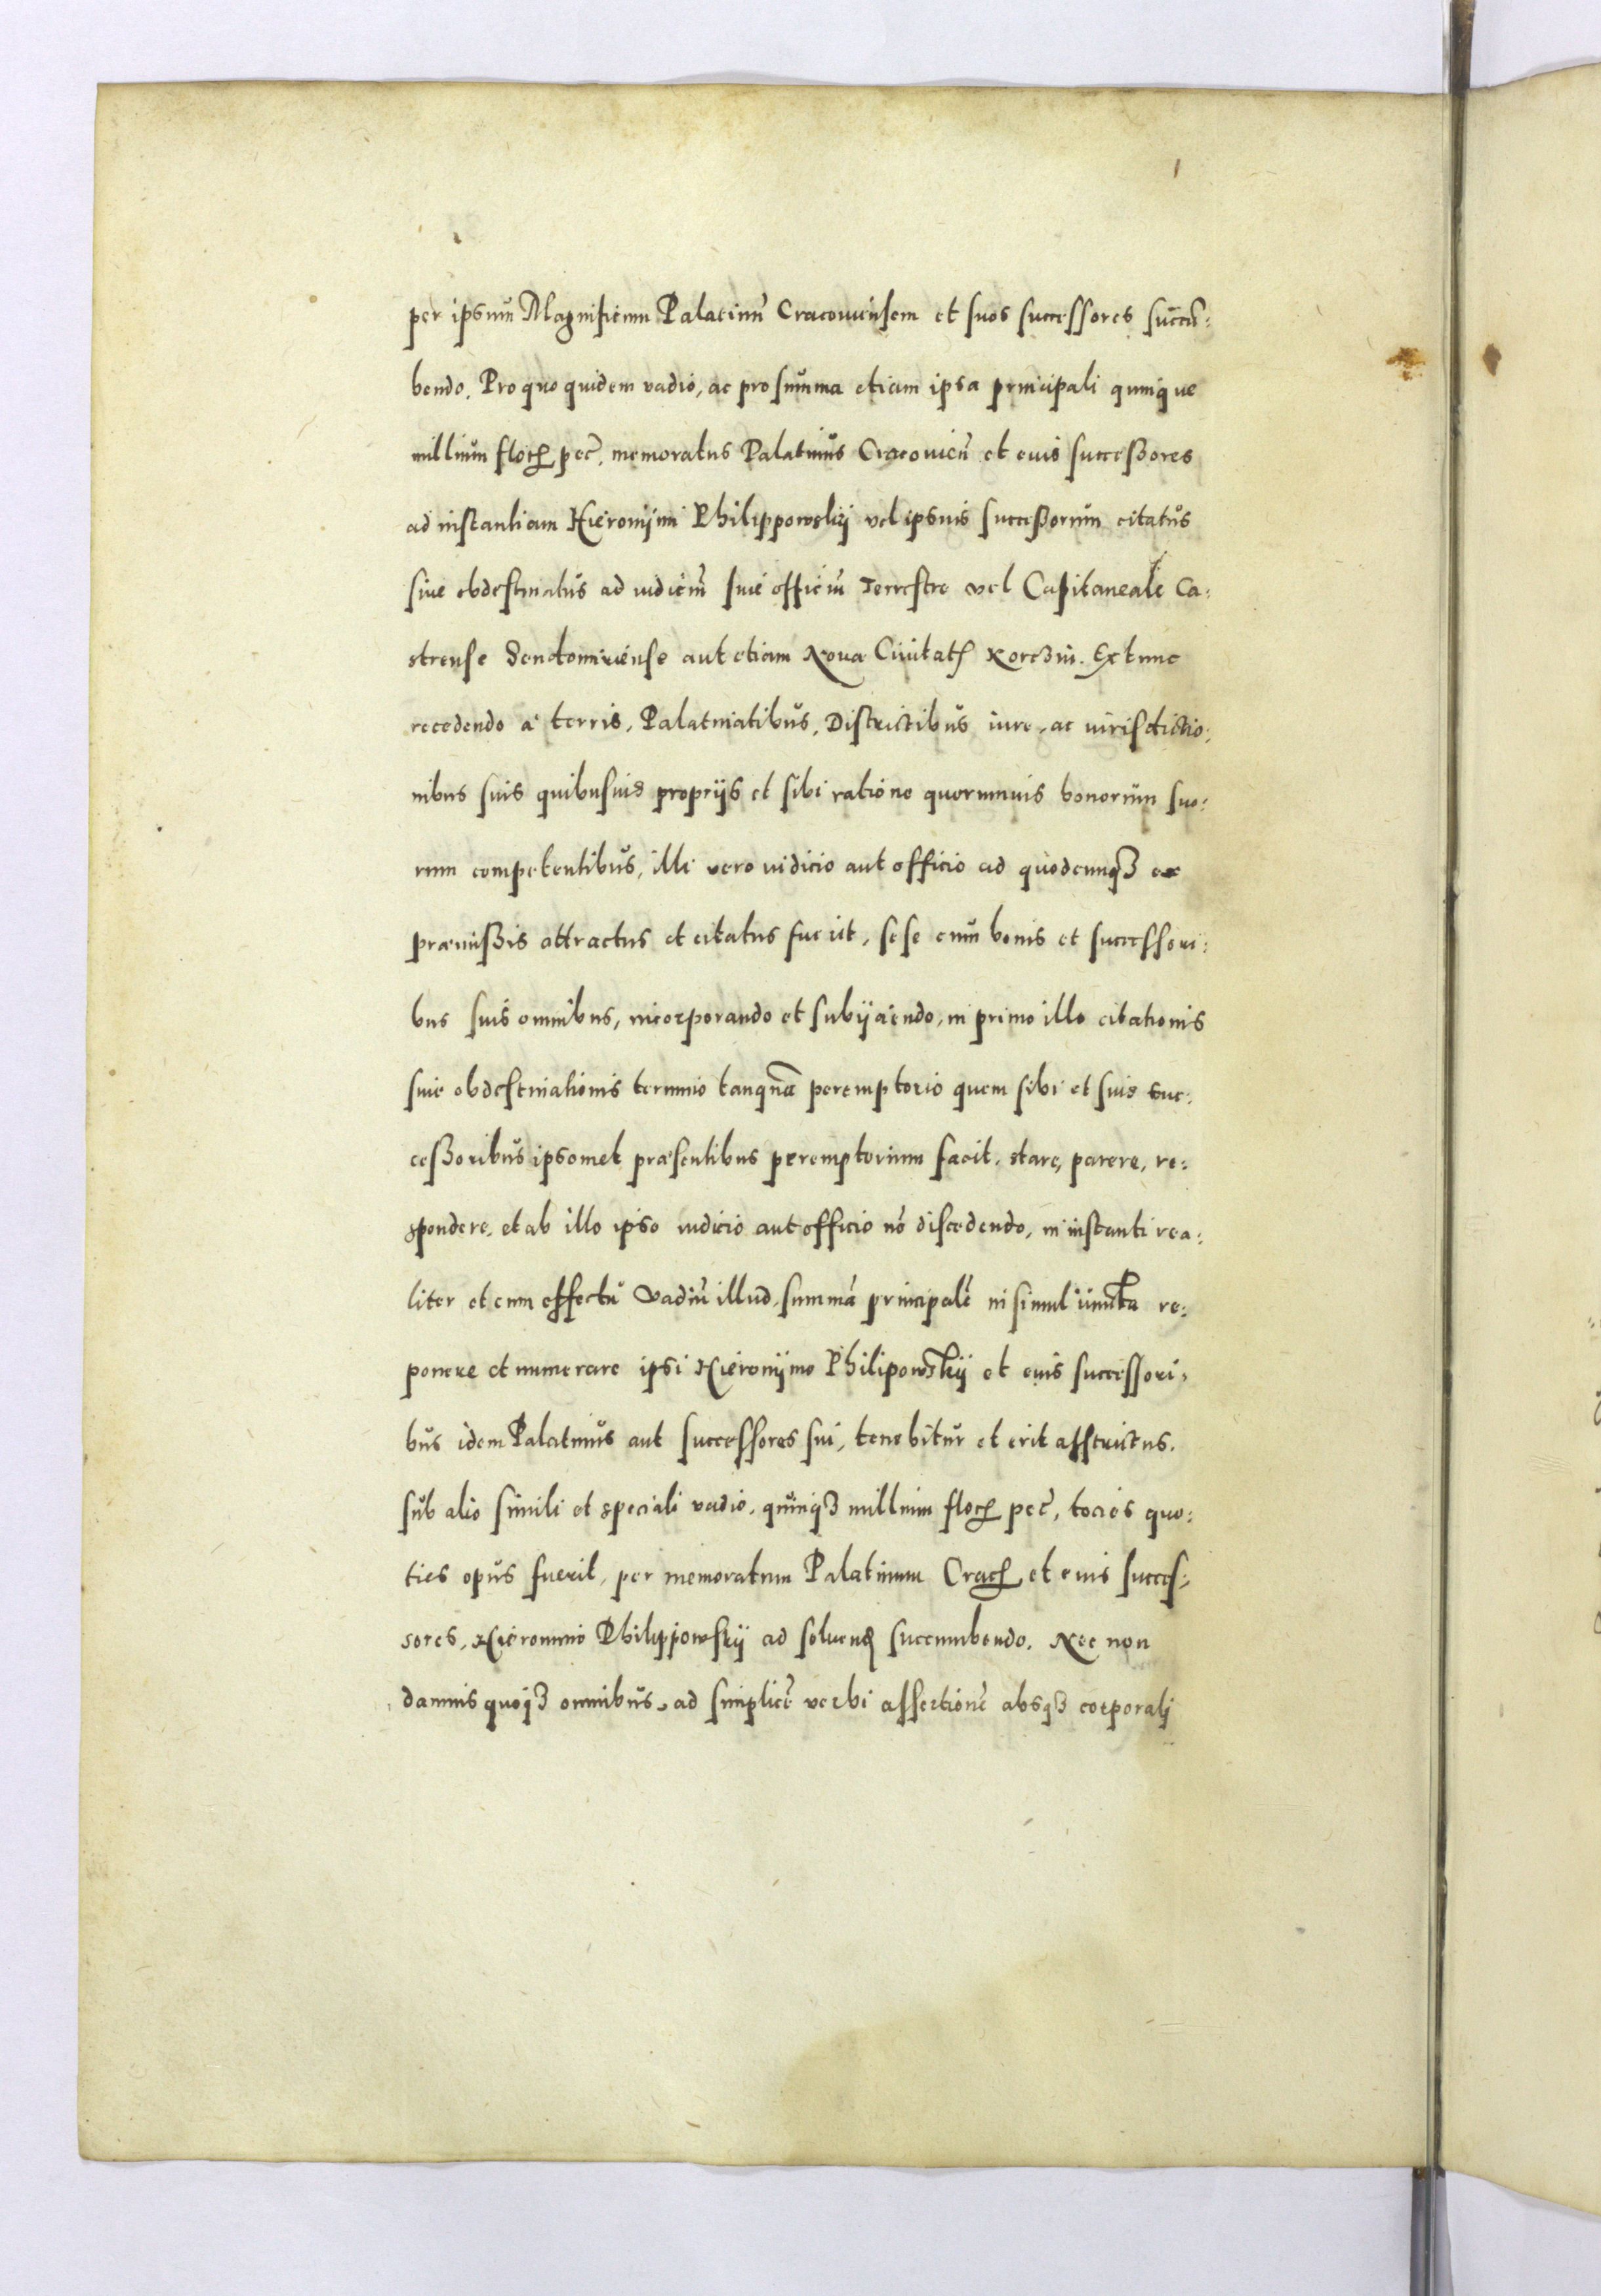 per ipsum Magnificum Palatinũ Cracouiensem et suos successores succũ:
bendo. Pro quo quidem vadio, ac pro summa etiam ipsa principali quinque
millium floꝝ pec̃, memoratus Palatinus Cracouieñ et euis successores
ad instantiam Hieronijmi Philippowskij vel ipsuis successorum citatus
siue obdestinatus ad iudiciũ siue officiũ Terrestre vel Capitaneale Ca:
strense Sendomiriense aut etiam Noua Ciuitatꝭ Korczin. Extunc
recedendo a terris, Palatinatibus, Districtibus iure, ac iurisdictio:
nibus suis quibusuis proprijs et sibi ratione quorumuis bonorum suo:
rum competentibus, illi vero iudicio aut officio ad quodcunqꝫ ex
præmissis attractus et citatus fuerit, sese cum bonis et successori:
bus suis omnibus, incorporando et subijciendo, in primo illo citationis
siue obdestinationis termino tanquã peremptorio quem sibi et suis suc:
cessoribus ipsomet præsentibus peremptorium facit, stare, parere, re:
spondere, et ab illo ipso iudicio aut officio nõ discedendo, in instanti rea:
liter et cum effectu vadiũ illud, summã principalẽ in simul iuncta re:
ponere et numerare ipsi Hieronijmo Philipowskij et euis successori:
bus idem Palatinus aut successores sui, tenebitur et erit asstrictus.
sub alio simili et speciali vadio, quinqꝫ millium floꝝ pec̃, tocies quo:
ties opus fuerit, per memoratum Palatinum Cracꝭ et euis succes:
sores, Hieronimo Philippowskij ad soluenđ succumbendo. Nec non
damnis quoqꝫ omnibus, ad simplicẽ verbi assertionẽ absqꝫ corporalj